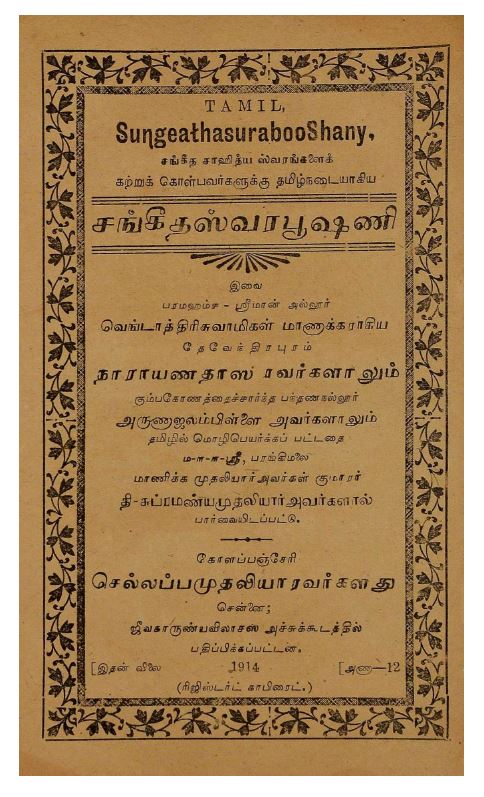 TAMIL,
SungeathasurabooShany,
சங்கீத சாஹித்ய ஸ்வரங்களைக்
கற்றுக் கொள்பவர்களுக்கு தமிழ்நடையாகிய
சங்கீதஸ்வரபூஷணி
இவை
பரமஹம்ச - ஸ்ரீமான் அல்லூர்
வெங்டாத்திரிசுவாமிகள் மாணக்கராகிய
தேவேக்திரபுரம்
நாராயணதாஸ ரவர்களாலும்
கும்பகோணத்தைச்சார்ந்த பந்தணநல்லூர்
அருணாஜலம்பிள்ளை அவர்களாலும்
தமிழில் மொழிபெயர்க்கப் பட்டதை
ம-ா-ா-ஸ்ரீ, பரங்கிமலை
மாணிக்க முதலியார்அவர்கள் குமாரர்
தி-சுப்ரமண்யமுதலியார்அவர்களால்
பார்வையிடப்பட்டு.
கோளப்பஞ்சேரி
செல்லப்பமுதலியாரவர்களது
சென்னை;
ஜீவகாருண்யவிலாசஸ அச்சுக்கூடத்தில்
பதிப்பிக்கப்பட்டன.
[இதன் விலை 1914 [அணா—12
(ரிஜிஸ்டர்ட் காபிரைட்.)